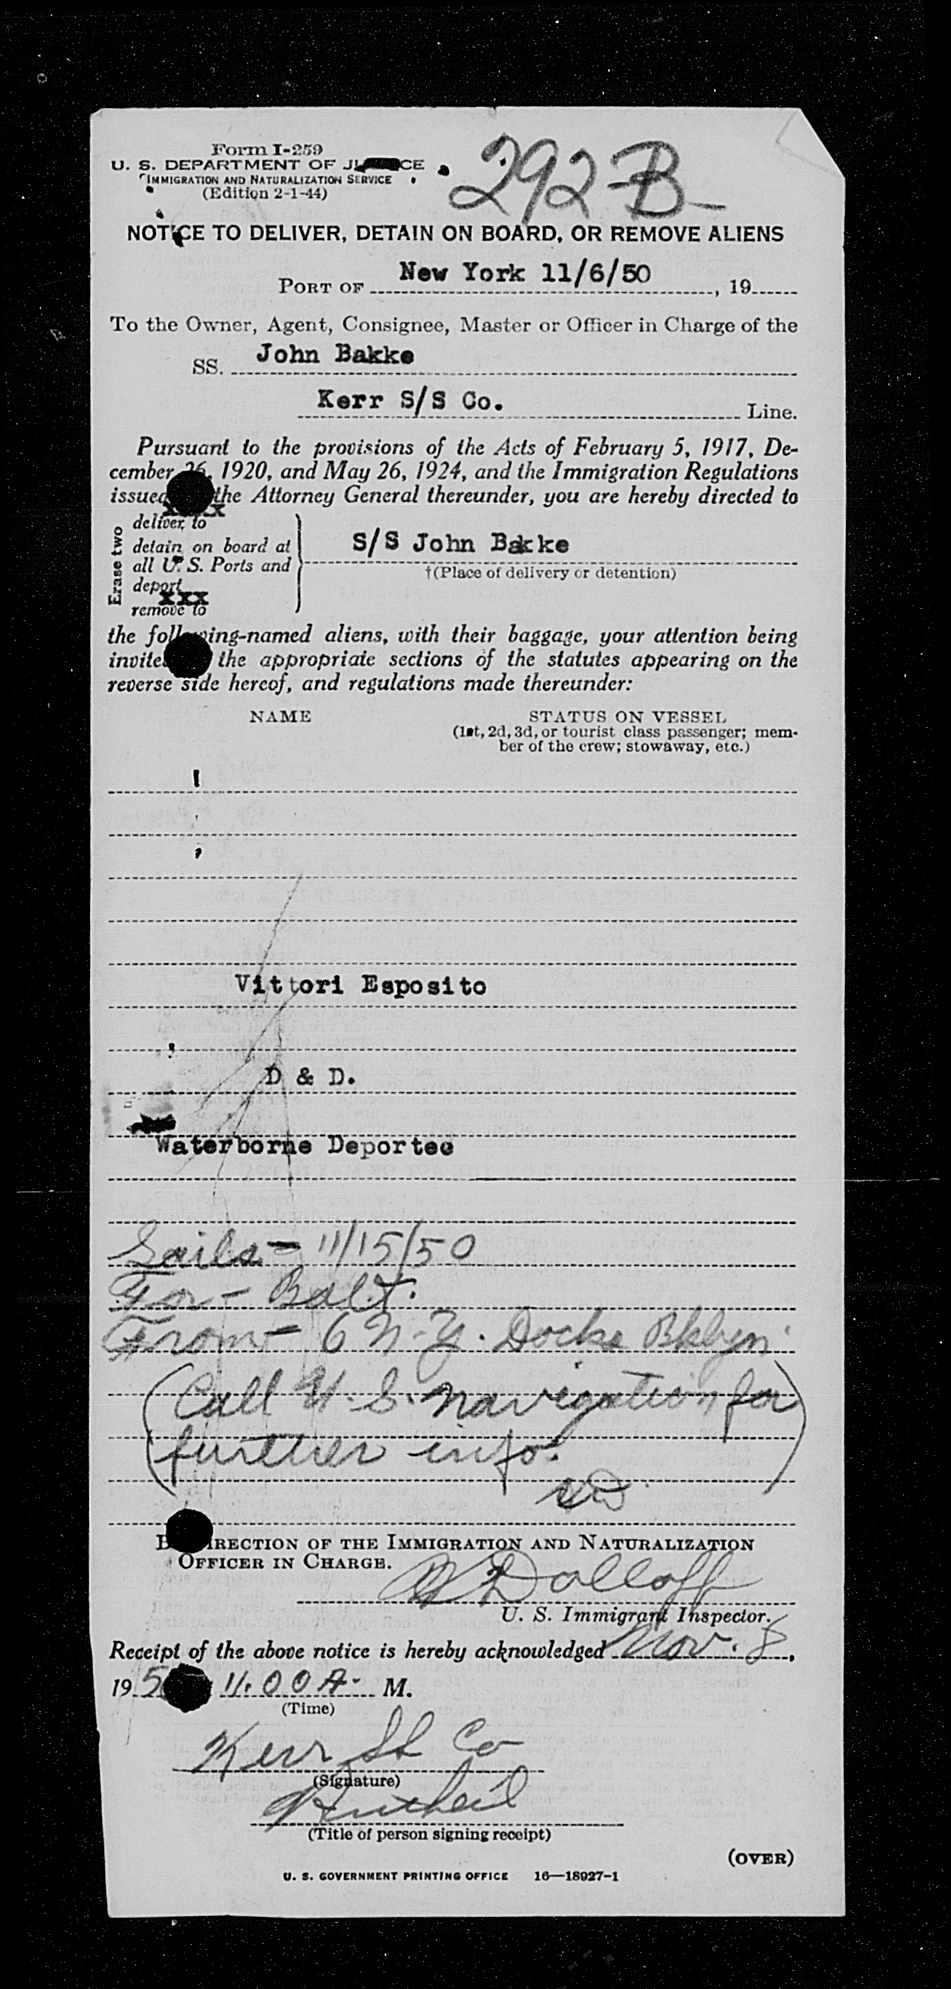 Form I-259
292-B
U. S. DEPARTMENT OF JUSTICE
IMMIGRATION AND NATURALIZATION SERVICE
(Edition 2-1-44)
NOTICE TO DELIVER, DETAIN ON BOARD, OR REMOVE ALIENS
PORT OF New York 11/6/50, 19
To the Owner, Agent, Consignee, Master or Officer in Charge of the
SS. John Bakke
Kerr S/S Co. Line.
Pursuant to the provisions of the Acts of February 5, 1917, De-
cember 26, 1920, and May 26, 1924, and the Immigration Regulations
issued the Attorney General thereunder, you are hereby directed to
xxxx
Erase two
deliver to
detain on board at
all U. S. Ports and
deport
xxx
remove to
S/S John Bakke
†(Place of delivery or detention)
the following-named aliens, with their baggage, your attention being
invited the appropriate sections of the statutes appearing on the
reverse side hereof, and regulations made thereunder:
NAME STATUS ON VESSEL
(1st, 2d, 3d, or tourist class passenger; mem-
ber of the crew; stowaway, etc.)
Vittori Esposito
D & D.
Waterborne Deportee
Sails - 11/15/50
For - Balt.
From - 6 N.Y. Docks Bklyn
(Call U.S. Navigation for
further info.)
BY DIRECTION OF THE IMMIGRATION AND NATURALIZATION
OFFICER IN CHARGE.
Dolloff
U. S. Immigrant Inspector.
Receipt of the above notice is hereby acknowledged Nov. 8,
195 11.00 A. M.
(Time)
Kerr SS Co
(Signature)
(Title of person signing receipt)
(OVER)
U. S. GOVERNMENT PRINTING OFFICE 16—18927-1